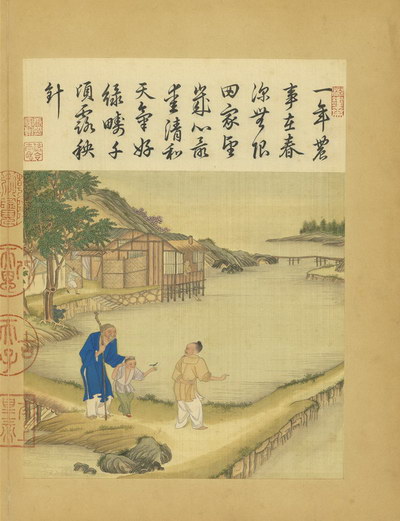 一年農
事在春
深無限
田家望
歲心最
愛清和
天氣好
綠疇千
頃露秧
針